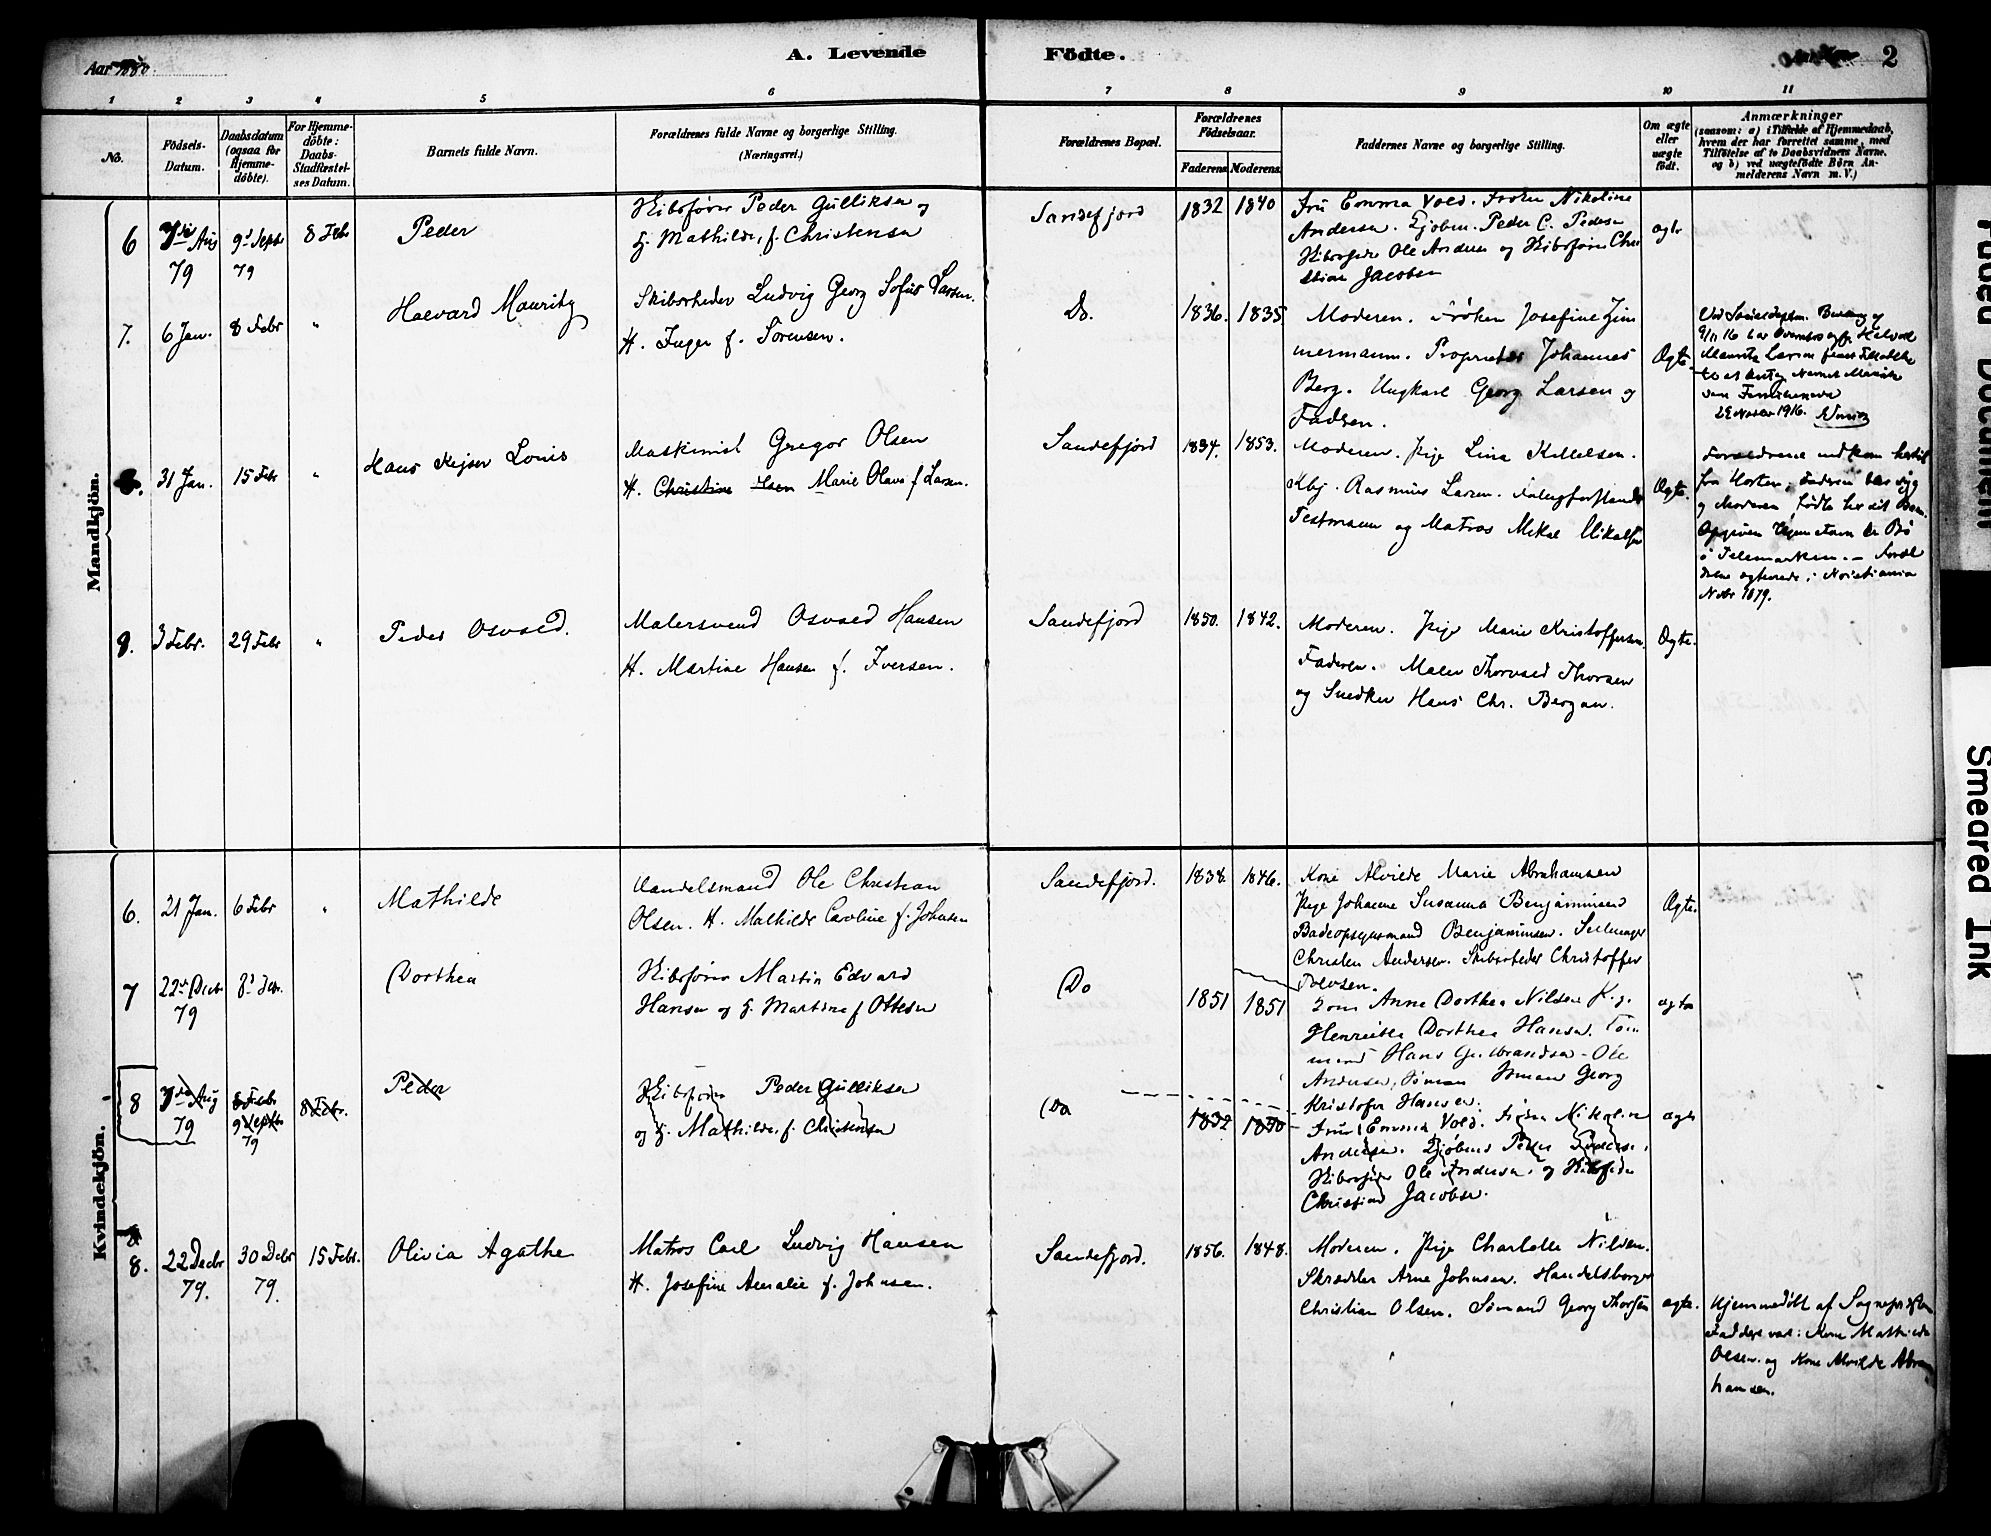 Aar 1880.
A. Levende Födte.
2
1 2 3 4 5 6 7 8 9 10 11
No.
Födsels-Datum.
Daabsdatum (ogsaa for Hjemme-döbte).
For Hjemme-döbte: Daabs-Stadfæstel-ses Datum.
Barnets fulde Navn.
Forældrenes fulde Navne og borgerlige Stilling.
(Næringsvei.)
Forældrenes Bopæl.
Forældrenes Födselsaar.
Faderens Moderens
Faddernes Navne og borgerlige Stilling.
Om ægte eller uægte födt.
Anmærkninger
(saasom: a) i Tilfælde af Hjemmedaab,
hvem der har forrettet samme, med
Tilföielse af to Daabsvidners Navne,
og b) ved uægtefödte Börn An-
melderens Navn m. V.)
Mandkjön.
6 Aug 79 9d Septr 79 8 Febr Peder
Skibsfører Peder Gulliksen og
H. Mathilde, f. Christensen
Sandefjord 1832 1840
Fru Emma Vold. Frøken Nikoline
Andersen. Kjøbm. Peder C. Pedersen
Skibsreder Ole Andersen og Skibsfører Chri
stian Jacobsen
ægte
7. 6 Jan. 8 Febr " Halvard Mauritz
Skibsreder Ludvig Georg Sofus Larsen.
H. Inger f. Sørensen.
Do. 1836. 1835.
Moderen. Frøken Josefine Zim
mermann. Proprietær Johannes
Berg. Ungkarl Georg Larsen og
Faderen.
Ægte.
9/11 16 har
Mauritz Larsen faaet Tilladelse
til at
som Familienavn
1916.
8. 31 Jan. 15 Febr " Hans Kejser Louis
Maskinist Gregor Olsen
H. Christine Olsen Marie Olava f. Larsen.
Sandefjord 1834. 1853.
Moderen. Pige Lina Kittelsen.
Kbj. Rasmus Larsen.
Testmann og Matros Mikal Mikalsen
Ægte.
Forældrene indkom hertil
fra Horten, Faderen blev syg
og Moderen fødte her sit Barn.
Opgiven Hjemstavn er Bø
i Telemarken. — Foræl
drene ægteviede i Kristiania
Novbr 1879.
9. 3 Febr. 29 Febr " Peder Osvald.
Malersvend Osvald Hansen
H. Martine Hansen f. Iversen.
Sandefjord 1850. 1842.
Moderen. Pige Marie Kristoffersen
Faderen. Maler Thorvald Thorsen
og Snedker Hans Chr. Bergan.
Ægte.
Kvindekjön.
6. 21 Jan. 6 Febr " Mathilde
Handelsmand Ole Christian
Olsen. H. Mathilde Caroline f. Johnsen
Sandefjord. 1838. 1846.
Kone Alvilde Marie Abrahamsen
Pige Johanne Susanna Benjaminsen
Badeopsynsmand Benjaminsen. Seilmager
Christen Andersen. Skibsreder Christoffer
Ægte.
7 22de Decbr 79 8d Febr. Dorthea
Skibsfører Martin Edvard
Hansen og H. Martine f Ottesen
Do 1851 1851
Kone Anne Dorthea Nilsen Pige
Henriette Dorthea Hansen. Tøm
mermd Hans Gulbrandsen - Ole
Andersen, Søman Georg
Kristofer Hansen.
ægte
8 Aug 79 8 Febr 9 Septbr 79 8 Febr. Peder
Skibsfører Peder Gulliksen
og H. Mathilde, f. Christensen
Do 1832 1840
Fru Emma Vold. Frøken Nikoline
Andersen. Kjøbmd Peder Pedersen,
Skibsreder Ole Andersen, og Skibsfører
Christian Jacobsen.
ægte
8. 22 Decbr 79. 30 Decbr 79. 15 Febr. Olivia Agathe
Matros Carl Ludvig Hansen
H. Josefine Amalie f. Johnsen.
Sandefjord. 1856. 1848.
Moderen. Pige Charlotte Nilsen.
Skrædder Arne Johnsen. Handelsborger
Christian Olsen. Sømand Georg Thorsen
ægte.
Hjemmedøbt af Sognepresten
Faddere var: Kone Mathilde
Olsen og Kone Alvilde Abra
hamsen.
Faded Document
Smeared Ink